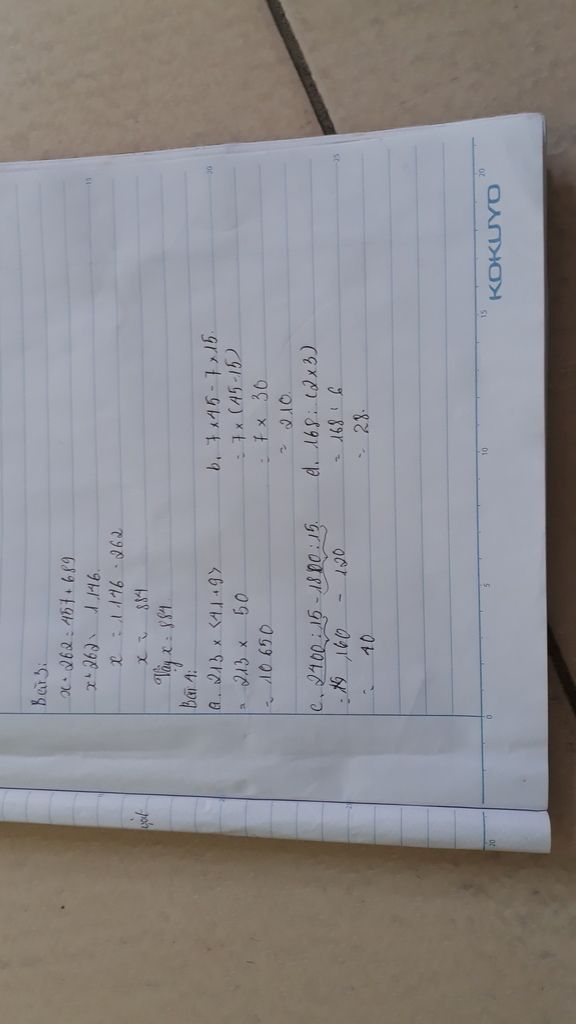 Bài 3:
x + 262 = 457 + 689
x + 262 = 1.146
x = 1.146 - 262
x = 884
Vậy x = 884
Bài 4:
a. 213 x (41+9)
= 213 x 50
= 10650
b. 7 x 45 - 7 x 15.
= 7 x (45-15)
= 7 x 30
= 210
c. 2400 : 15 - 1800 : 15.
= 160 - 120
= 40
d. 168 : (2x3)
= 168 : 6
= 28.
15
20
25
0
5
10
15
20
KOKUYO
20